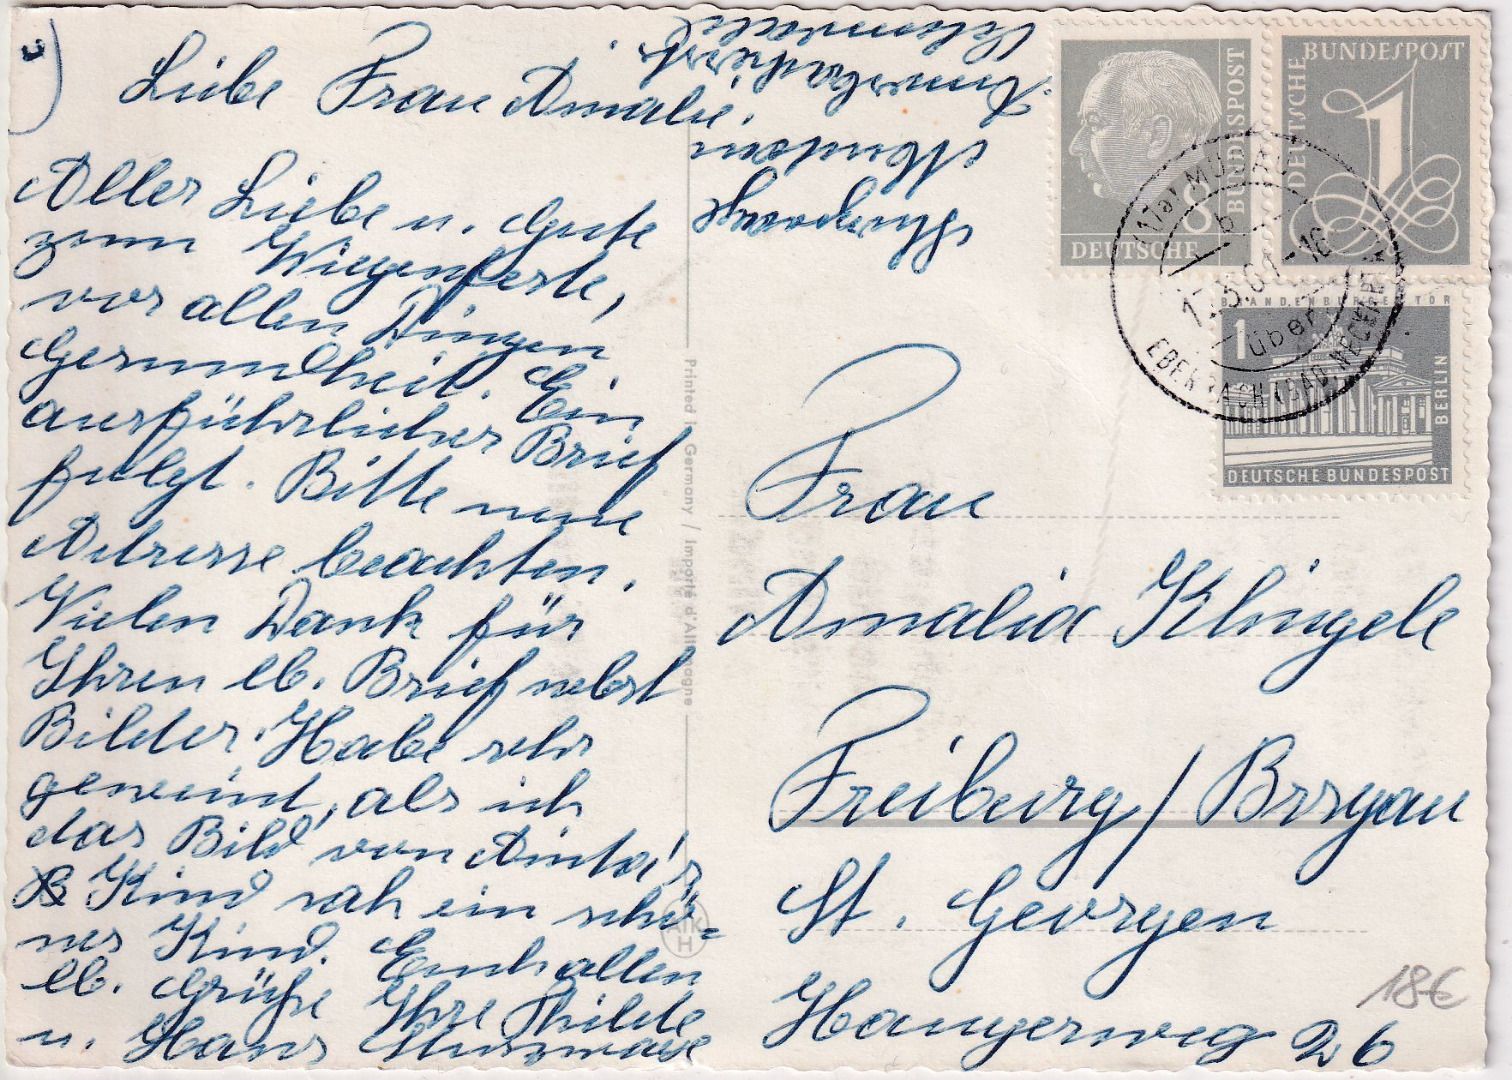 Liebe Frau Amalie,
Aller Liebe u. Gute
zum Wiegenfeste,
vor allen Dingen
Gesundheit. Ein
ausführlicher Brief
folgt. Bitte neue
Adresse beachten.
Vielen Dank für
Ihren lb. Brief nebst
Bilder. Habe sehr
geweint, als ich
das Bild von Anita's
Kind sah ein schö=
nes Kind. Euch allen
lb. Grüße Ihre Thilde
u. Hans
Printed in Germany / Importé d'Allemagne
AK
H
DEUTSCHE BUNDESPOST
8
DEUTSCHE BUNDESPOST
1
BRANDENBURGER TOR
1
BERLIN
DEUTSCHE BUNDESPOST
über
EBERBACH (BAD, NECKAR)
Frau
Amalia Klingele
Freiburg / Brsgau
St. Georgen
Hangerweg 26
18€